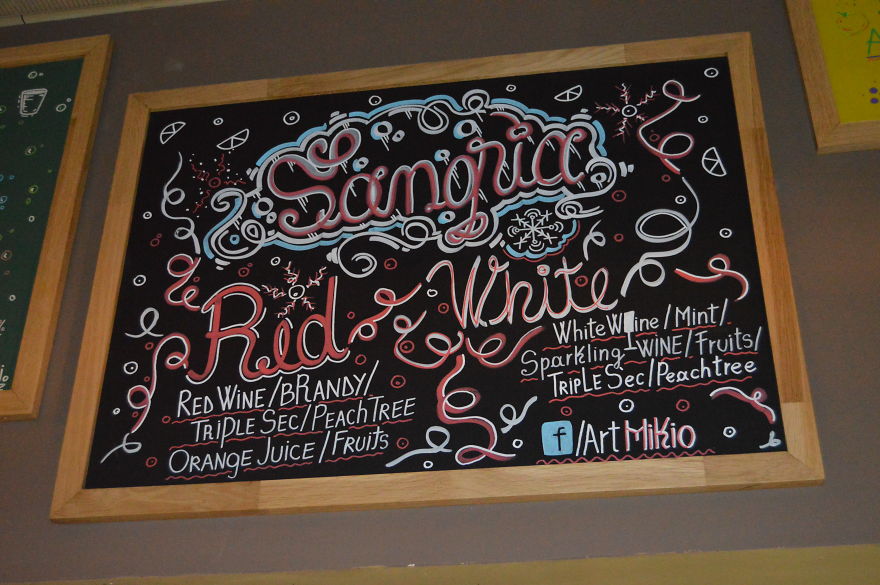 Sangria
Red
RED WINE/BRANDY/
TRIPLE SEC/PEACH TREE
ORANGE JUICE/FRUITS
White
White Wine/Mint/
Sparkling-WINE/Fruits/
TRIPLE SEC/Peachtree
f/Art Mikio